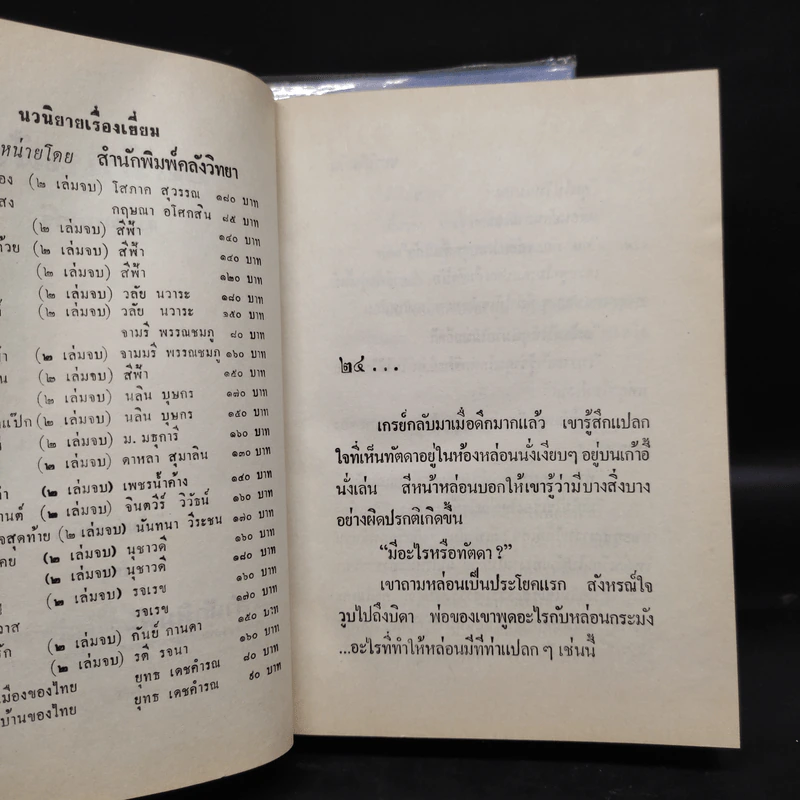 นวนิยายเรื่องเยี่ยม
หน่ายโดย สำนักพิมพ์คลังวิทยา
อง (๒ เล่มจบ) โสภาค สุวรรณ ๑๘๐ บาท
สง กฤษณา อโศกสิน ๘๕ บาท
(๒ เล่มจบ) สีฟ้า ๑๔๐ บาท
ด้วย (๒ เล่มจบ) สีฟ้า ๑๔๐ บาท
(๒ เล่มจบ) สีฟ้า ๑๒๐ บาท
(๒ เล่มจบ) วลัย นวาระ ๑๘๐ บาท
(๒ เล่มจบ) วลัย นวาระ ๑๕๐ บาท
จามรี พรรณชมภู ๘๐ บาท
(๒ เล่มจบ) จามมรี พรรณชมภู ๑๖๐ บาท
น (๒ เล่มจบ) สีฟ้า ๑๕๐ บาท
(๒ เล่มจบ) นลิน บุษกร ๑๗๐ บาท
แป๊ก (๒ เล่มจบ) นลิน บุษกร ๑๕๐ บาท
(๒ เล่มจบ) ม. มธุการี ๑๖๐ บาท
(๒ เล่มจบ) ดาหลา สุมาลิน ๑๓๐ บาท
(๒ เล่มจบ) เพชรน้ำค้าง ๑๔๐ บาท
านต์ (๒ เล่มจบ) จินตวีร์ วิวัธน์ ๑๖๐ บาท
จสุดท้าย (๒ เล่มจบ) นันทนา วีระชน ๑๗๐ บาท
คย (๒ เล่มจบ) นุชาวดี ๑๖๐ บาท
(๒ เล่มจบ) นุชาวดี ๑๘๐ บาท
(๒ เล่มจบ) รจเรข ๑๖๐ บาท
วาส รจเรข ๑๗๐ บาท
รัก (๒ เล่มจบ) กันย์ กานดา ๑๕๐ บาท
(๒ เล่มจบ) รตี รจนา ๑๖๐ บาท
เมืองของไทย ยุทธ เดชคำรณ ๘๐ บาท
บ้านของไทย ยุทธ เดชคำรณ ๙๐ บาท
๒๔ . . .
เกรย์กลับมาเมื่อดึกมากแล้ว เขารู้สึกแปลก
ใจที่เห็นทัตดาอยู่ในห้องหล่อนนั่งเงียบๆ อยู่บนเก้าอี้
นั่งเล่น สีหน้าหล่อนบอกให้เขารู้ว่ามีบางสิ่งบาง
อย่างผิดปรกติเกิดขึ้น
“มีอะไรหรือทัตดา ?”
เขาถามหล่อนเป็นประโยคแรก สังหรณ์ใจ
วูบไปถึงบิดา พ่อของเขาพูดอะไรกับหล่อนกระมัง
...อะไรที่ทำให้หล่อนมีทีท่าแปลก ๆ เช่นนี้